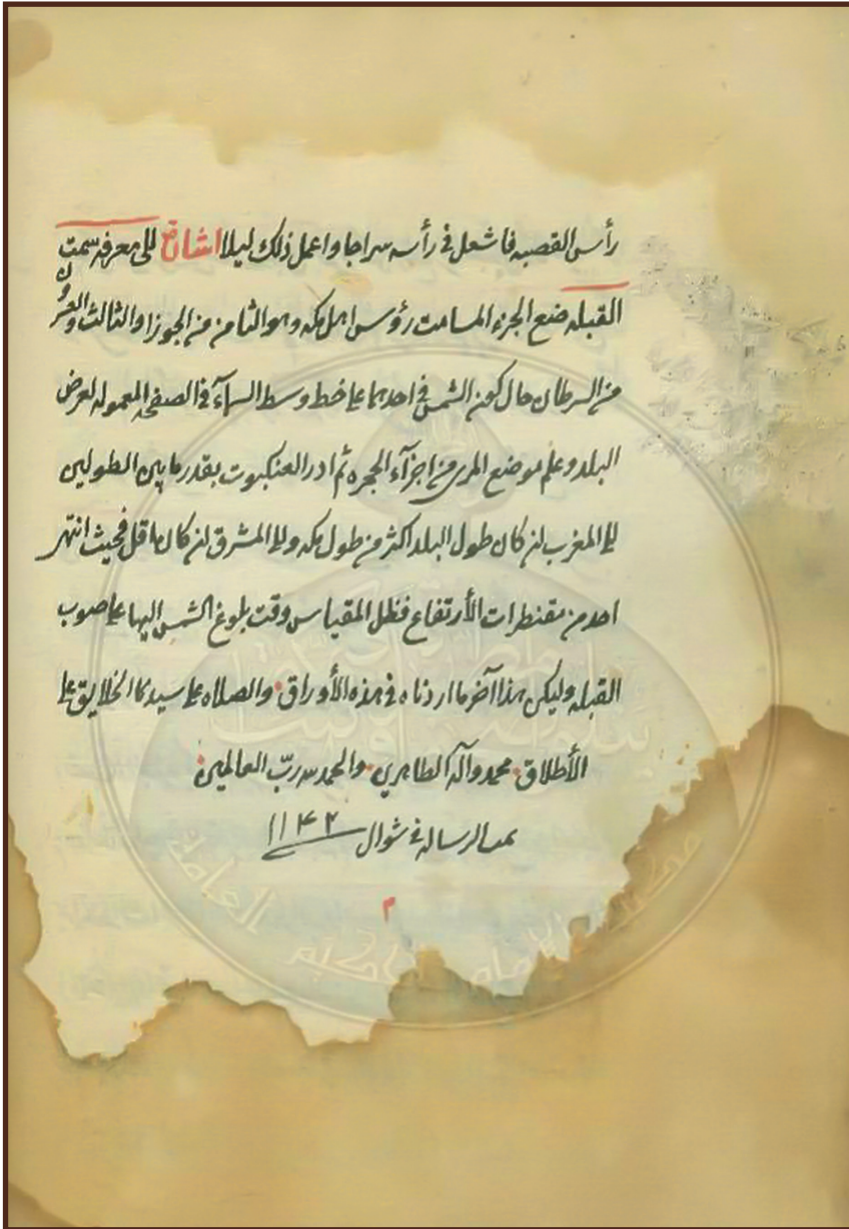 رأس القصبه فاشعل في رأسه سراجا واعمل ذلك ليلا اشارة الى معرفة سمت
القبله ضع الجزء المسامت رؤس اهل مكه وهو الثامن من الجوزا والثالث والعشرون
من السرطان حال كون الشمس في احدهما على خط وسط السمآء في الصفحه المعموله لعرض
البلد وعلم موضع المري من اجزآء الحجره ثم ادر العنكبوت بقدر ما بين الطولين
الى المغرب ان كان طول البلد اكثر من طول مكه والى المشرق ان كان اقل فحيث انتهى
احد من مقنطرات الأرتفاع فظل المقياس وقت بلوغ الشمس اليها على صوب
القبله وليكن هذا آخر ما اردناه في هذه الأوراق والصلاه على سيد الخلايق على
الأطلاق محمد وآله الطاهرين والحمد لله ربّ العالمين
تمت الرساله في شوال ١١۴٢